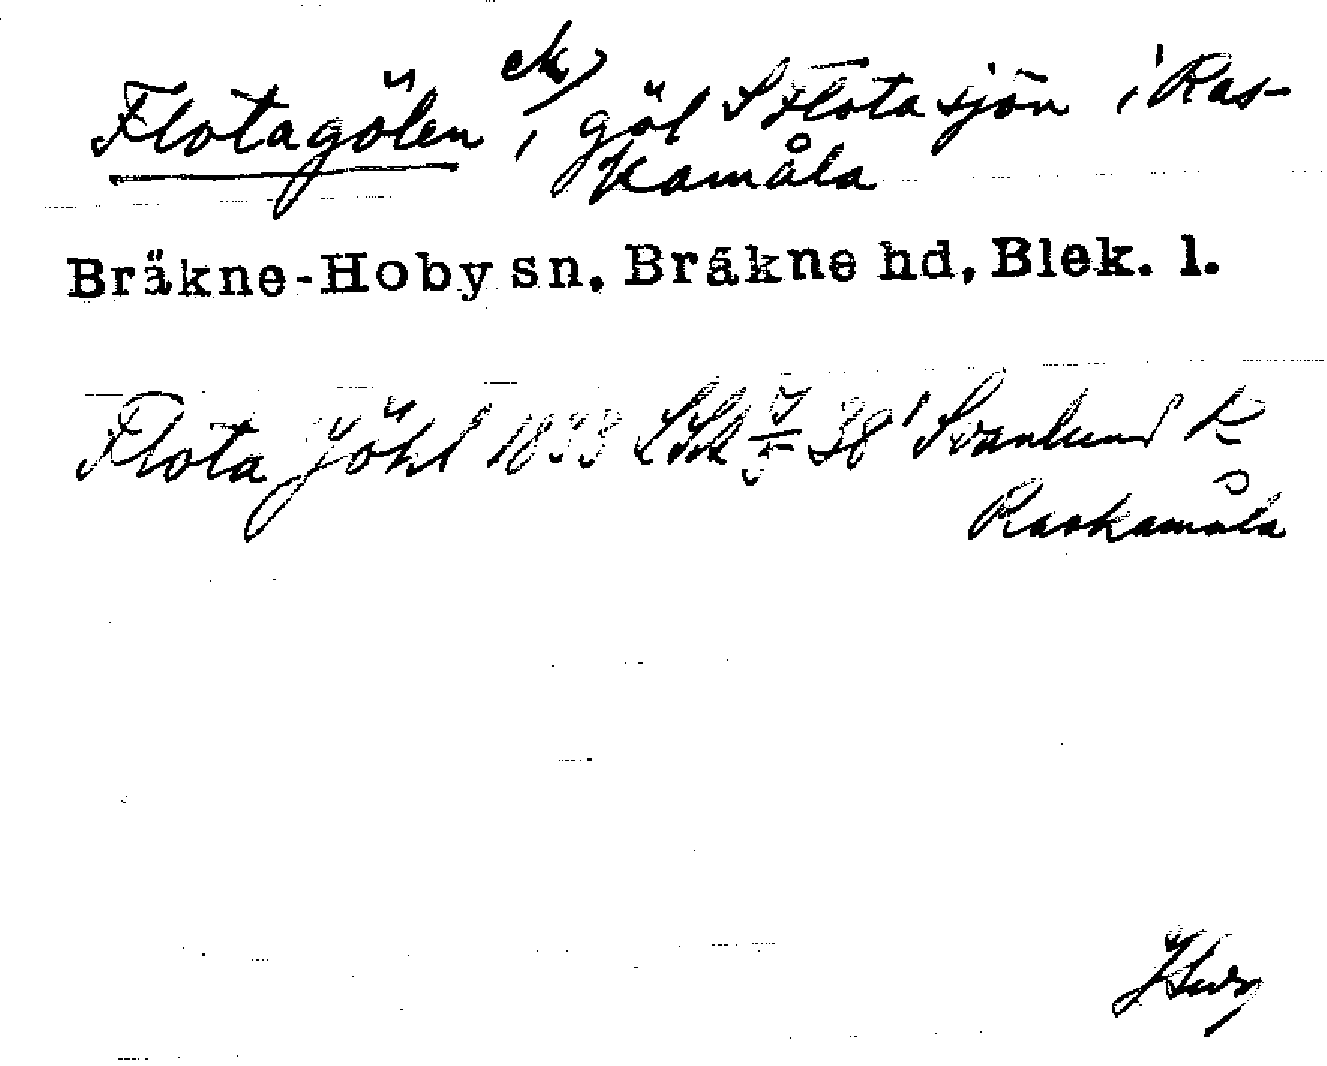 Flotagölen ek), göl S Flotasjön i Ras-
kamåla
Bräkne-Hoby sn. Bräkne hd, Blek. l.
Flota Göhl 1833 LSk 38 Svanlund
Raskamåla